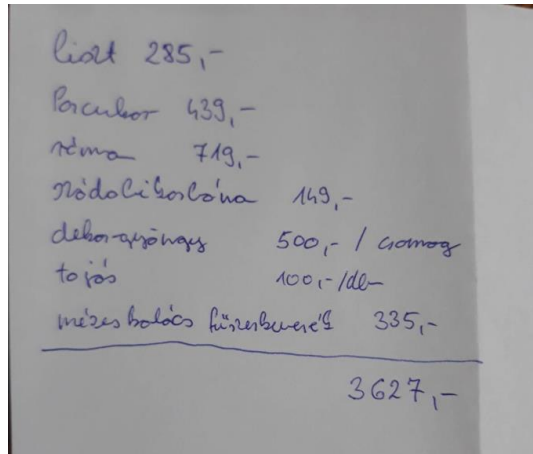 liszt 285,-
Porcukor 439,-
réma 719,-
szódabikarbóna 149,-
dekorgyöngy 500,- / csomag
tojás 100,-/db
mézeskalács fűszerkeverék 335,-
3627,-